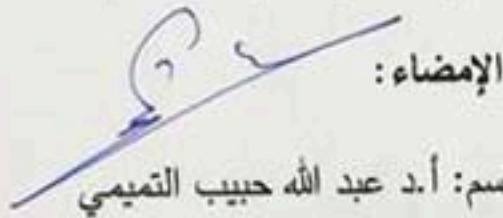 الإمضاء:
سم: أ.د عبد الله حبيب التميمي